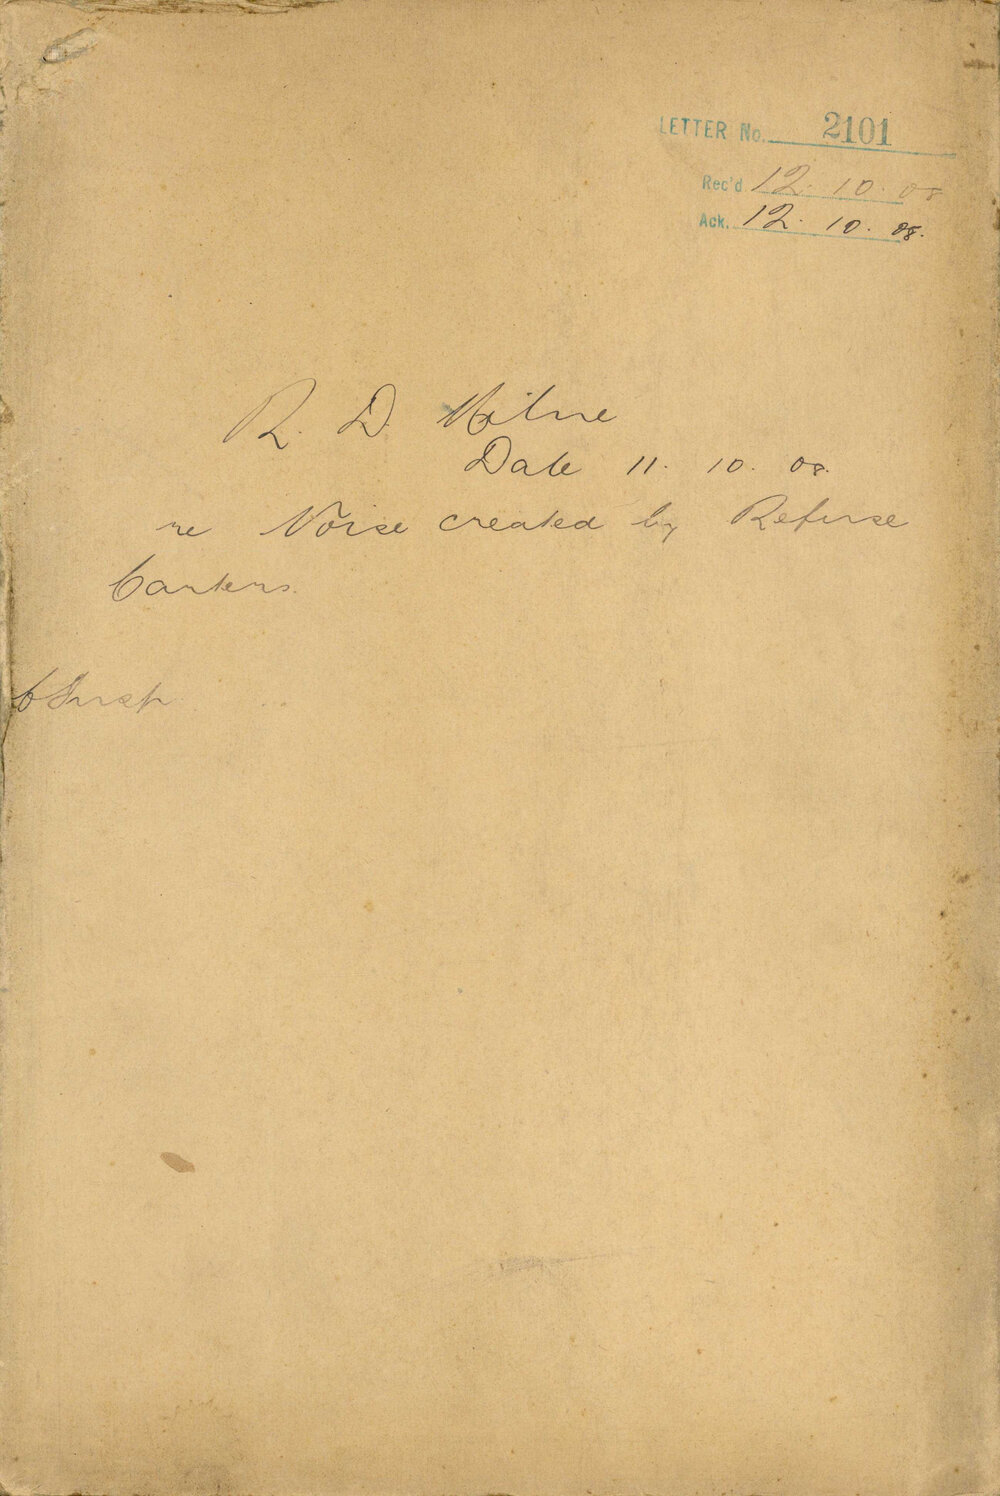 LETTER No. 2101
Rec'd 12. 10. 08
Ack. 12. 10. 08.
R. D. Milne
Date 11. 10. 08.
re Noise created by Refuse
Carters.